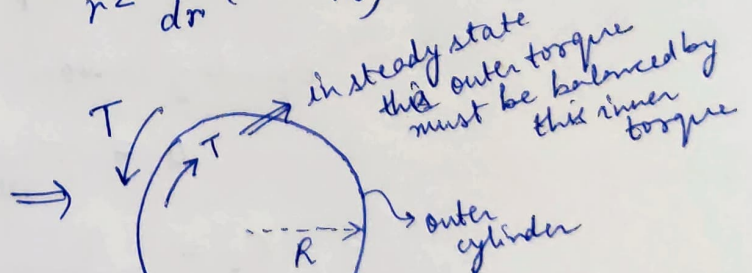 dr
in steady state
this outer torque
must be balanced by
this inner
torque
T
T
⇒
outer
cylinder
R